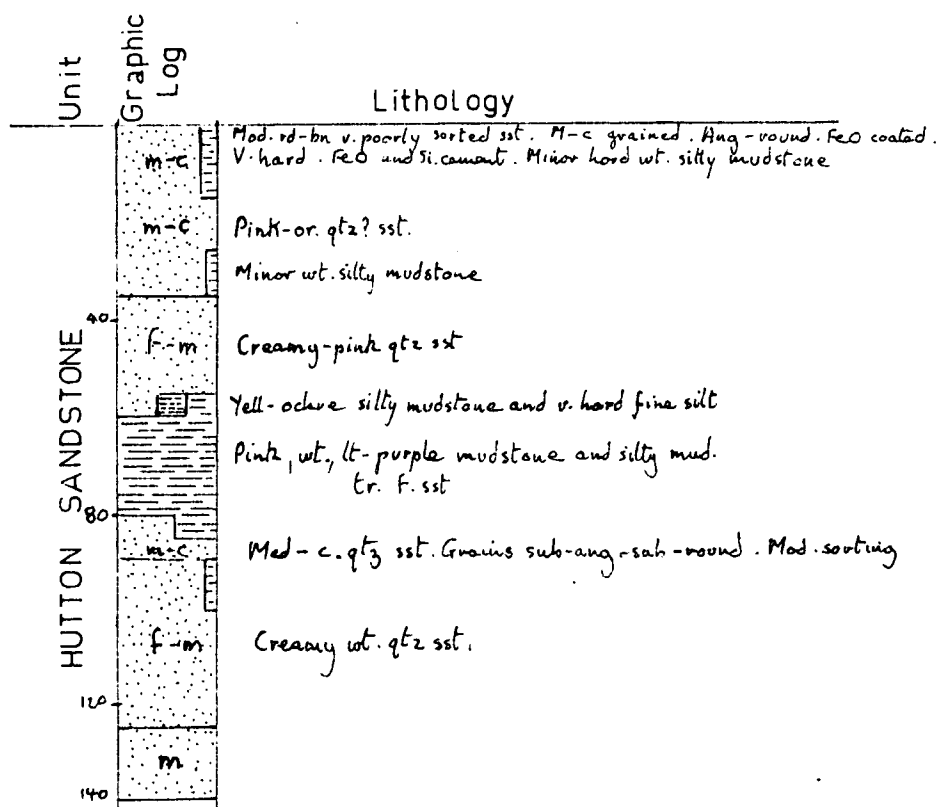 Unit
Graphic
Log
Lithology
HUTTON SANDSTONE
m-c
Mod. rd-bn v. poorly sorted sst. M-c grained. Ang-round. FeO coated.
V. hard. FeO and Si. cement. Minor hard wt. silty mudstone
m-c
Pink-or. qtz? sst.
Minor wt. silty mudstone
40
f-m
Creamy-pink qtz sst
Yell-ochre silty mudstone and v. hard fine silt
Pink, wt., lt-purple mudstone and silty mud.
tr. f. sst
80
m-c
Med-c. qtz sst. Grains sub-ang-sub-round. Mod. sorting
f-m
Creamy wt. qtz sst.
120
m
140